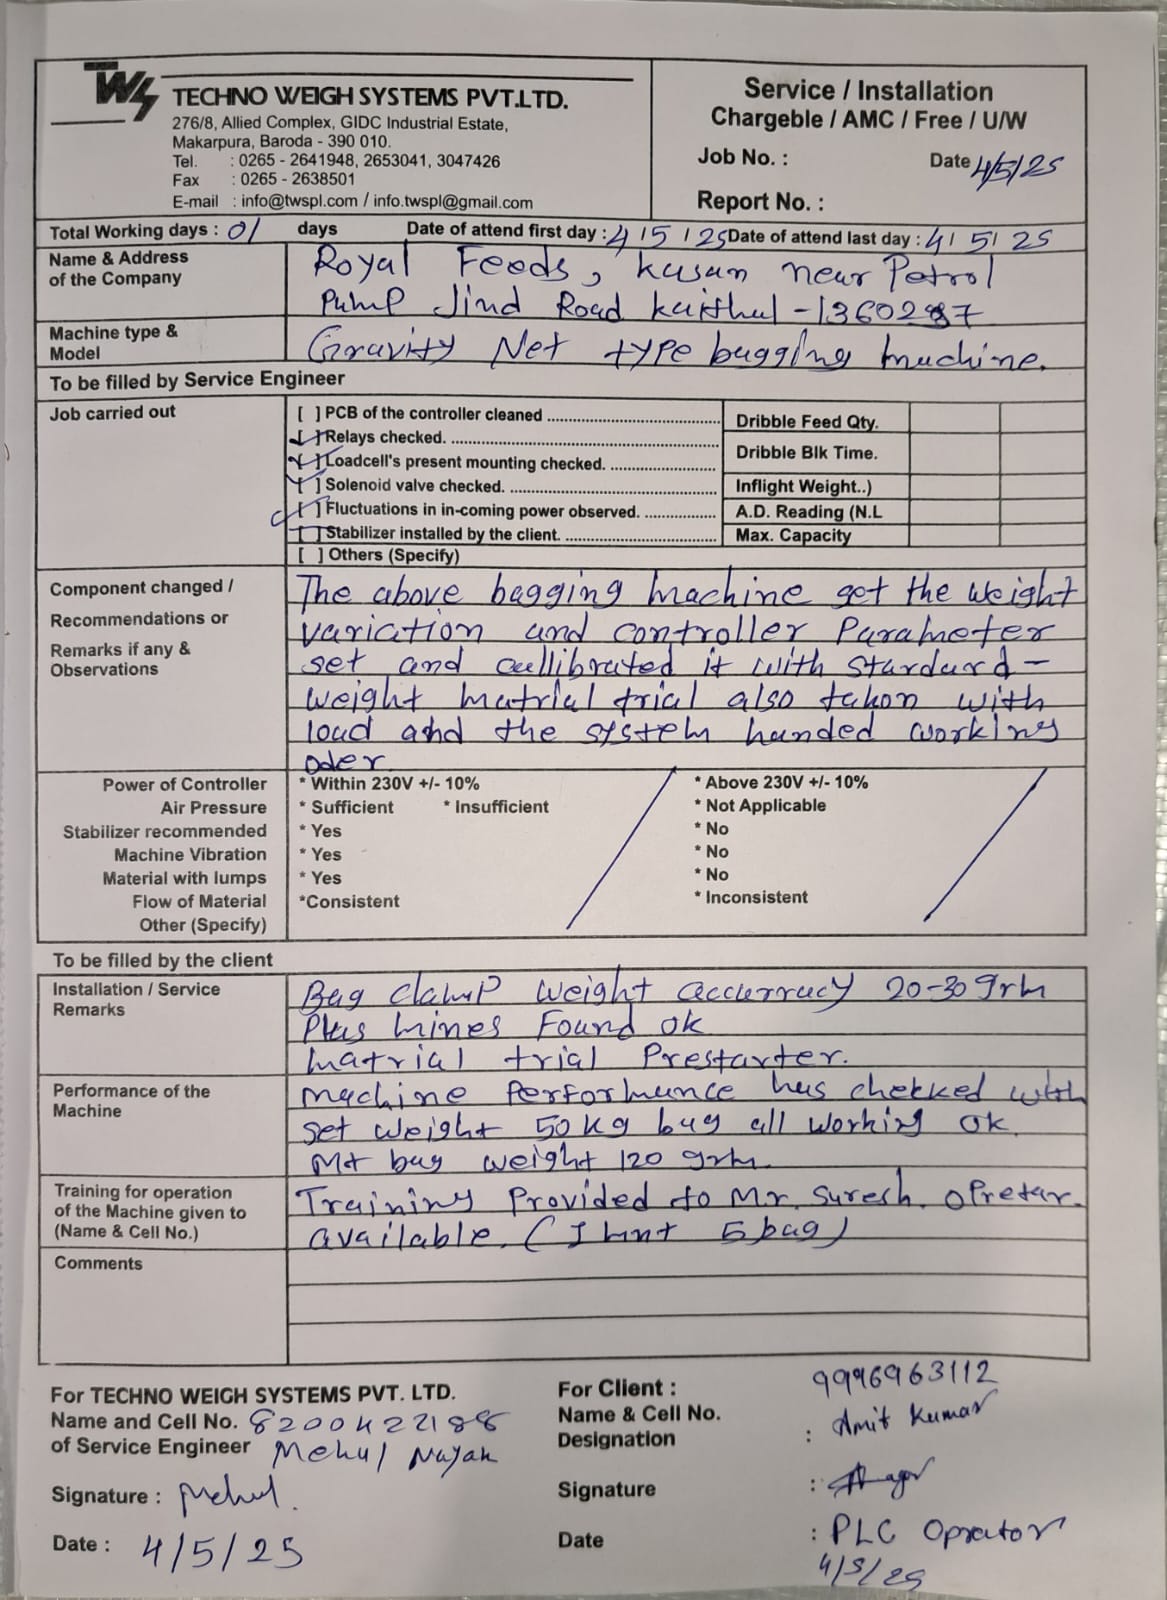 TWS
TECHNO WEIGH SYSTEMS PVT.LTD.
276/8, Allied Complex, GIDC Industrial Estate,
Makarpura, Baroda - 390 010.
Tel. : 0265 - 2641948, 2653041, 3047426
Fax : 0265 - 2638501
E-mail : info@twspl.com / info.twspl@gmail.com
Service / Installation
Chargeble / AMC / Free / U/W
Job No. : Date 4/5/25
Report No. :
Total Working days : 01 days Date of attend first day : 4/5/25 Date of attend last day : 4/5/25
Name & Address of the Company
Royal Feeds, kasan near Petrol
Pump Jind Road kaithal -
Machine type & Model
Gravity Net type bagging machine.
To be filled by Service Engineer
Job carried out
[ ] PCB of the controller cleaned
[✓] Relays checked.
[✓] Loadcell's present mounting checked.
[✓] Solenoid valve checked.
[✓] Fluctuations in in-coming power observed.
[ ] Stabilizer installed by the client.
[ ] Others (Specify)
Dribble Feed Qty.
Dribble Blk Time.
Inflight Weight..)
A.D. Reading (N.L
Max. Capacity
Component changed /
Recommendations or
Remarks if any &
Observations
The above bagging machine get the weight
variation and controller Parameter
set and callibrated it with stardard -
weight matrial trial also takon with
load and the system handed working
oder
Power of Controller * Within 230V +/- 10% * Above 230V +/- 10%
Air Pressure * Sufficient * Insufficient * Not Applicable
Stabilizer recommended * Yes * No
Machine Vibration * Yes * No
Material with lumps * Yes * No
Flow of Material *Consistent * Inconsistent
Other (Specify)
To be filled by the client
Installation / Service
Remarks
Bag clamp weight accurracy 20-30 grm
Plus mines Found ok
matrial trial Prestarter.
Performance of the
Machine
machine Performance has checked with
set weight 50 kg bag all working ok
Mt bag weight 120 grm.
Training for operation
of the Machine given to
(Name & Cell No.)
Training Provided to Mr. Suresh. opretar.
available. ( 5 bag)
Comments
For TECHNO WEIGH SYSTEMS PVT. LTD.
Name and Cell No. 8200422188
of Service Engineer Mehul Nayak
Signature : Mehul.
Date : 4/5/25
For Client : 9996963112
Name & Cell No. : Amit Kumar
Designation
Signature :
Date : PLC Oprator
4/5/25